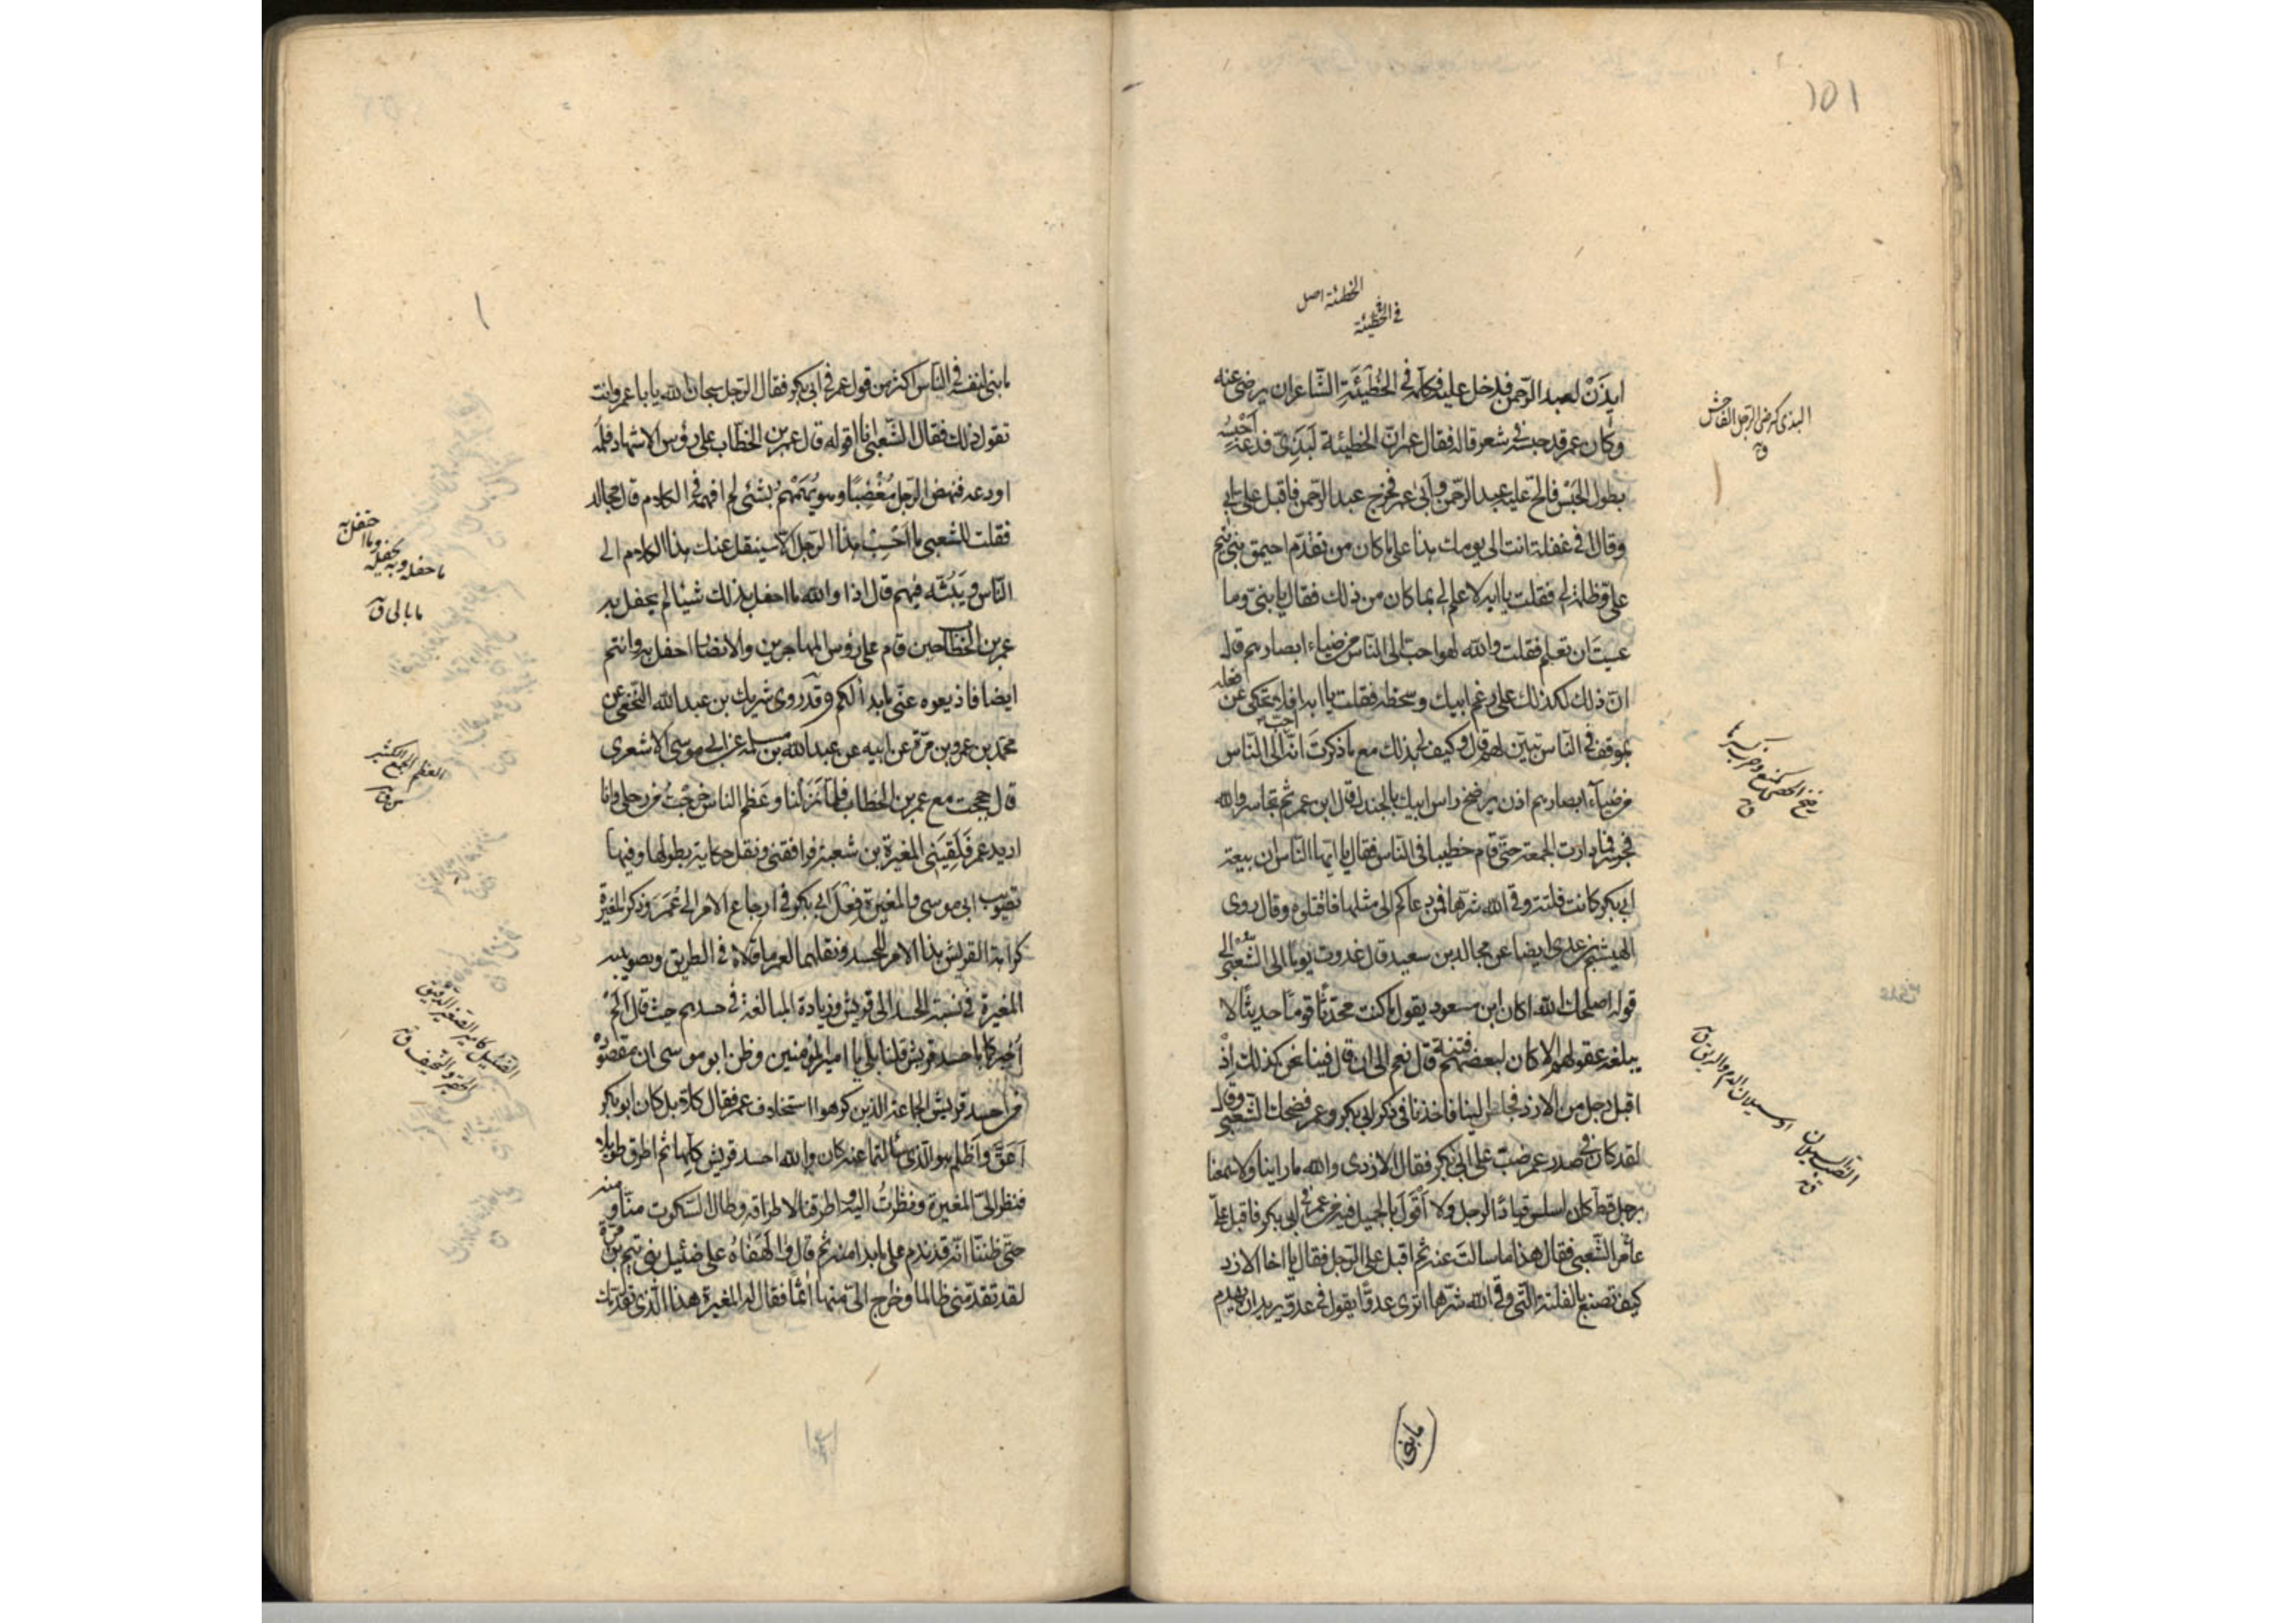 ١٥١
الحطئة اصل
في الحطيئة
ايذن لعبد الرّحمن فدخل عليه فكلّمه في الحُطَيْئَةِ الشّاعر ان يرضى عنه
وكان عمر قد حبسه في شعر قاله فقال عمر انّ الحطيئة لَبَذِيّ فدعه احبسه
بطول الحَبْس فالحّ عليه عبد الرّحمن وأبى عمر فخرج عبد الرّحمن فاقبل على ابي
وقال افي غفلة انت الى يومك هذا على ما كان من تقدّم احيمق بني تيم
عليّ وظلمه لي فقلت يا ابه لا علم لي بما كان من ذلك فقال يا بنيّ وما
عسيتَ ان تعلم فقلت والله لهو احبّ الى النّاس من ضياء ابصارهم قال
انّ ذلك لكذلك على رغم ابيك وسخطه فقلت يا ابه افلا تحكي عن فعله
بموقف في النّاس تبيّن لهم قال وكيف لي بذلك مع ما ذكرتَ انّه احبّ الى النّاس
من ضياء ابصارهم اذن يرضخ راس ابيك بالجندل قال ابن عمر ثم تجاسر والله
فجسر فما دارت الجمعة حتّى قام خطيبا في النّاس فقال يا ايّها النّاس ان بيعة
ابي بكر كانت فلتة وقى الله شرّها فمن دعاكم الى مثلها فاقتلوه وقال روى
الهيثم بن عدي ايضا عن مجالد بن سعيد قال غدوت يوما الى الشّعبي الى
قوله اصلحك الله اكان ابن مسعود يقول ما كنت محدّثا قوما حديثًا لا
يبلغه عقولهم الا كان لبعضهم فتنة قال نعم الى ان قال فبينا نحن كذلك اذْ
اقبل رجل من الازد فجلس الينا فاخذنا في ذكر ابي بكر وعمر فضحك الشّعبي وقال
لقد كان في صدر عمر ضبّ على ابي بكر فقال الازدي والله ما راينا ولا سمعنا
برجل قط كان اسلس قيادًا لرجل ولا اَقْوَلَ بالجميل فيه من عمر في ابي بكر فاقبل عليّ
عامر الشّعبي فقال هذا ما سالتَ عنه ثم اقبل على الرّجل فقال يا اخا الازد
كيف تصنع بالفلتة الّتي وقى الله شرّها اترى عدوًّا يقول في عدوّ يريد ان يهدم
البذي كرضي الرجل الفاحش
ق
رضخ الحصى كمنع وضرب كسرها
ق
الضب السيلان
او سيلان الدم والريق ق
(ما بنى)
ما بنى لنفسه في النّاس اكثر من قول عمر في ابي بكر فقال الرّجل سبحان الله يا با عمرو انت
تقول ذلك فقال الشّعبي انا اقوله قال عمر بن الخطّاب على رؤس الاشهاد فلمه
او دعه فنهض الرّجل مُغْضِبًا وهو يُهَمْهِمُ بشئي لم افهمه في الكلام قال مجالد
فقلت للشعبي ما اَحْسِبُ هذا الرّجل الا سينقل عنك هذا الكلام الى
النّاس ويَبُثّه فيهم قال اذا والله ما احفل بذلك شيئا لم يحفل به
عمر بن الخطّاب حين قام على رؤس المهاجرين والانصار احفل به وانتم
ايضا فاذيعوه عنّي ما بدا لكم وقد روى شريك بن عبد الله النّخعي عن
محمّد بن عمرو بن مرّة عن ابيه عن عبد الله بن سلمة عن ابي موسى الاشعري
قال حججت مع عمر بن الخطاب فلمّا نَزَلْنا وعَظم الناس خرجْتُ من رحلي وانا
اريد عمر فَلَقِيَنِي المغيرة بن شعبة فرافقني ونقل حكاية بطولها وفيها
تصويب ابي موسى والمغيرة فِعْلَ ابي بكر في ارجاع الامر الى عُمَرَ وذكر المغيرة
كراهة القريش هذا الامر للحسد ونقلهما لعمر ما قالاه في الطريق وتصويبه
المغيرة في نسبة الحسد الى قريش وزيادة المبالغة في حسدهم حيث قال الم
اُخبركما باحسد قريش قلنا بلى يا امير المؤمنين وظن ابو موسى ان مقصوده
من احسد قريش الجماعة الذين كرهوا استخلاف عمر فقال كلا بل كان ابو بكر
اَعَقَّ واَظلم هو الّذي سالتما عنه كان والله احسد قريش كلّها ثم اطرق طويلا
فنظر الىّ المغيرة ونظرتُ اليه واطرقنا لاطراقه وطال السّكوت منّا ومنه
حتّى ظننّا انّه قد ندم على ما بدا منه ثم قال وا لَهَفاهُ على ضئيل بني تيم بن مرّة
لقد تقدّمني ظالما وخرج الىّ منها اثمًا فقال له المغيرة هذا الّذي تقدّمك
ما حفله وبه يحفله
وما احتفل به
ما بالى ق
العظم الجمع الكثير
الضئيل كامير الصغير الدقيق
الحقير والنحيف ق